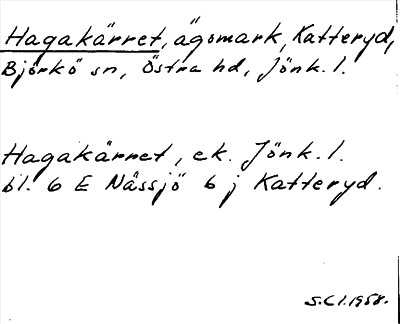 Hagakärret, ägomark, Katteryd,
Björkö sn, Östra hd, Jönk. l.
Hagakärret, ek. Jönk. l.
bl. 6 E Nässjö 6 j Katteryd.
S.C l. 1958.